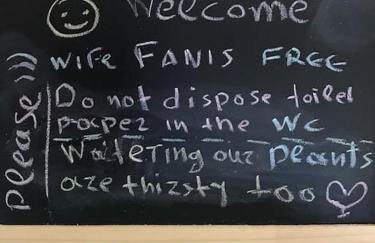 Welcome
WIFE FANIS FREE
Do not dispose toilet
papez in the WC
Waitering our peants
aze thizsty too
please